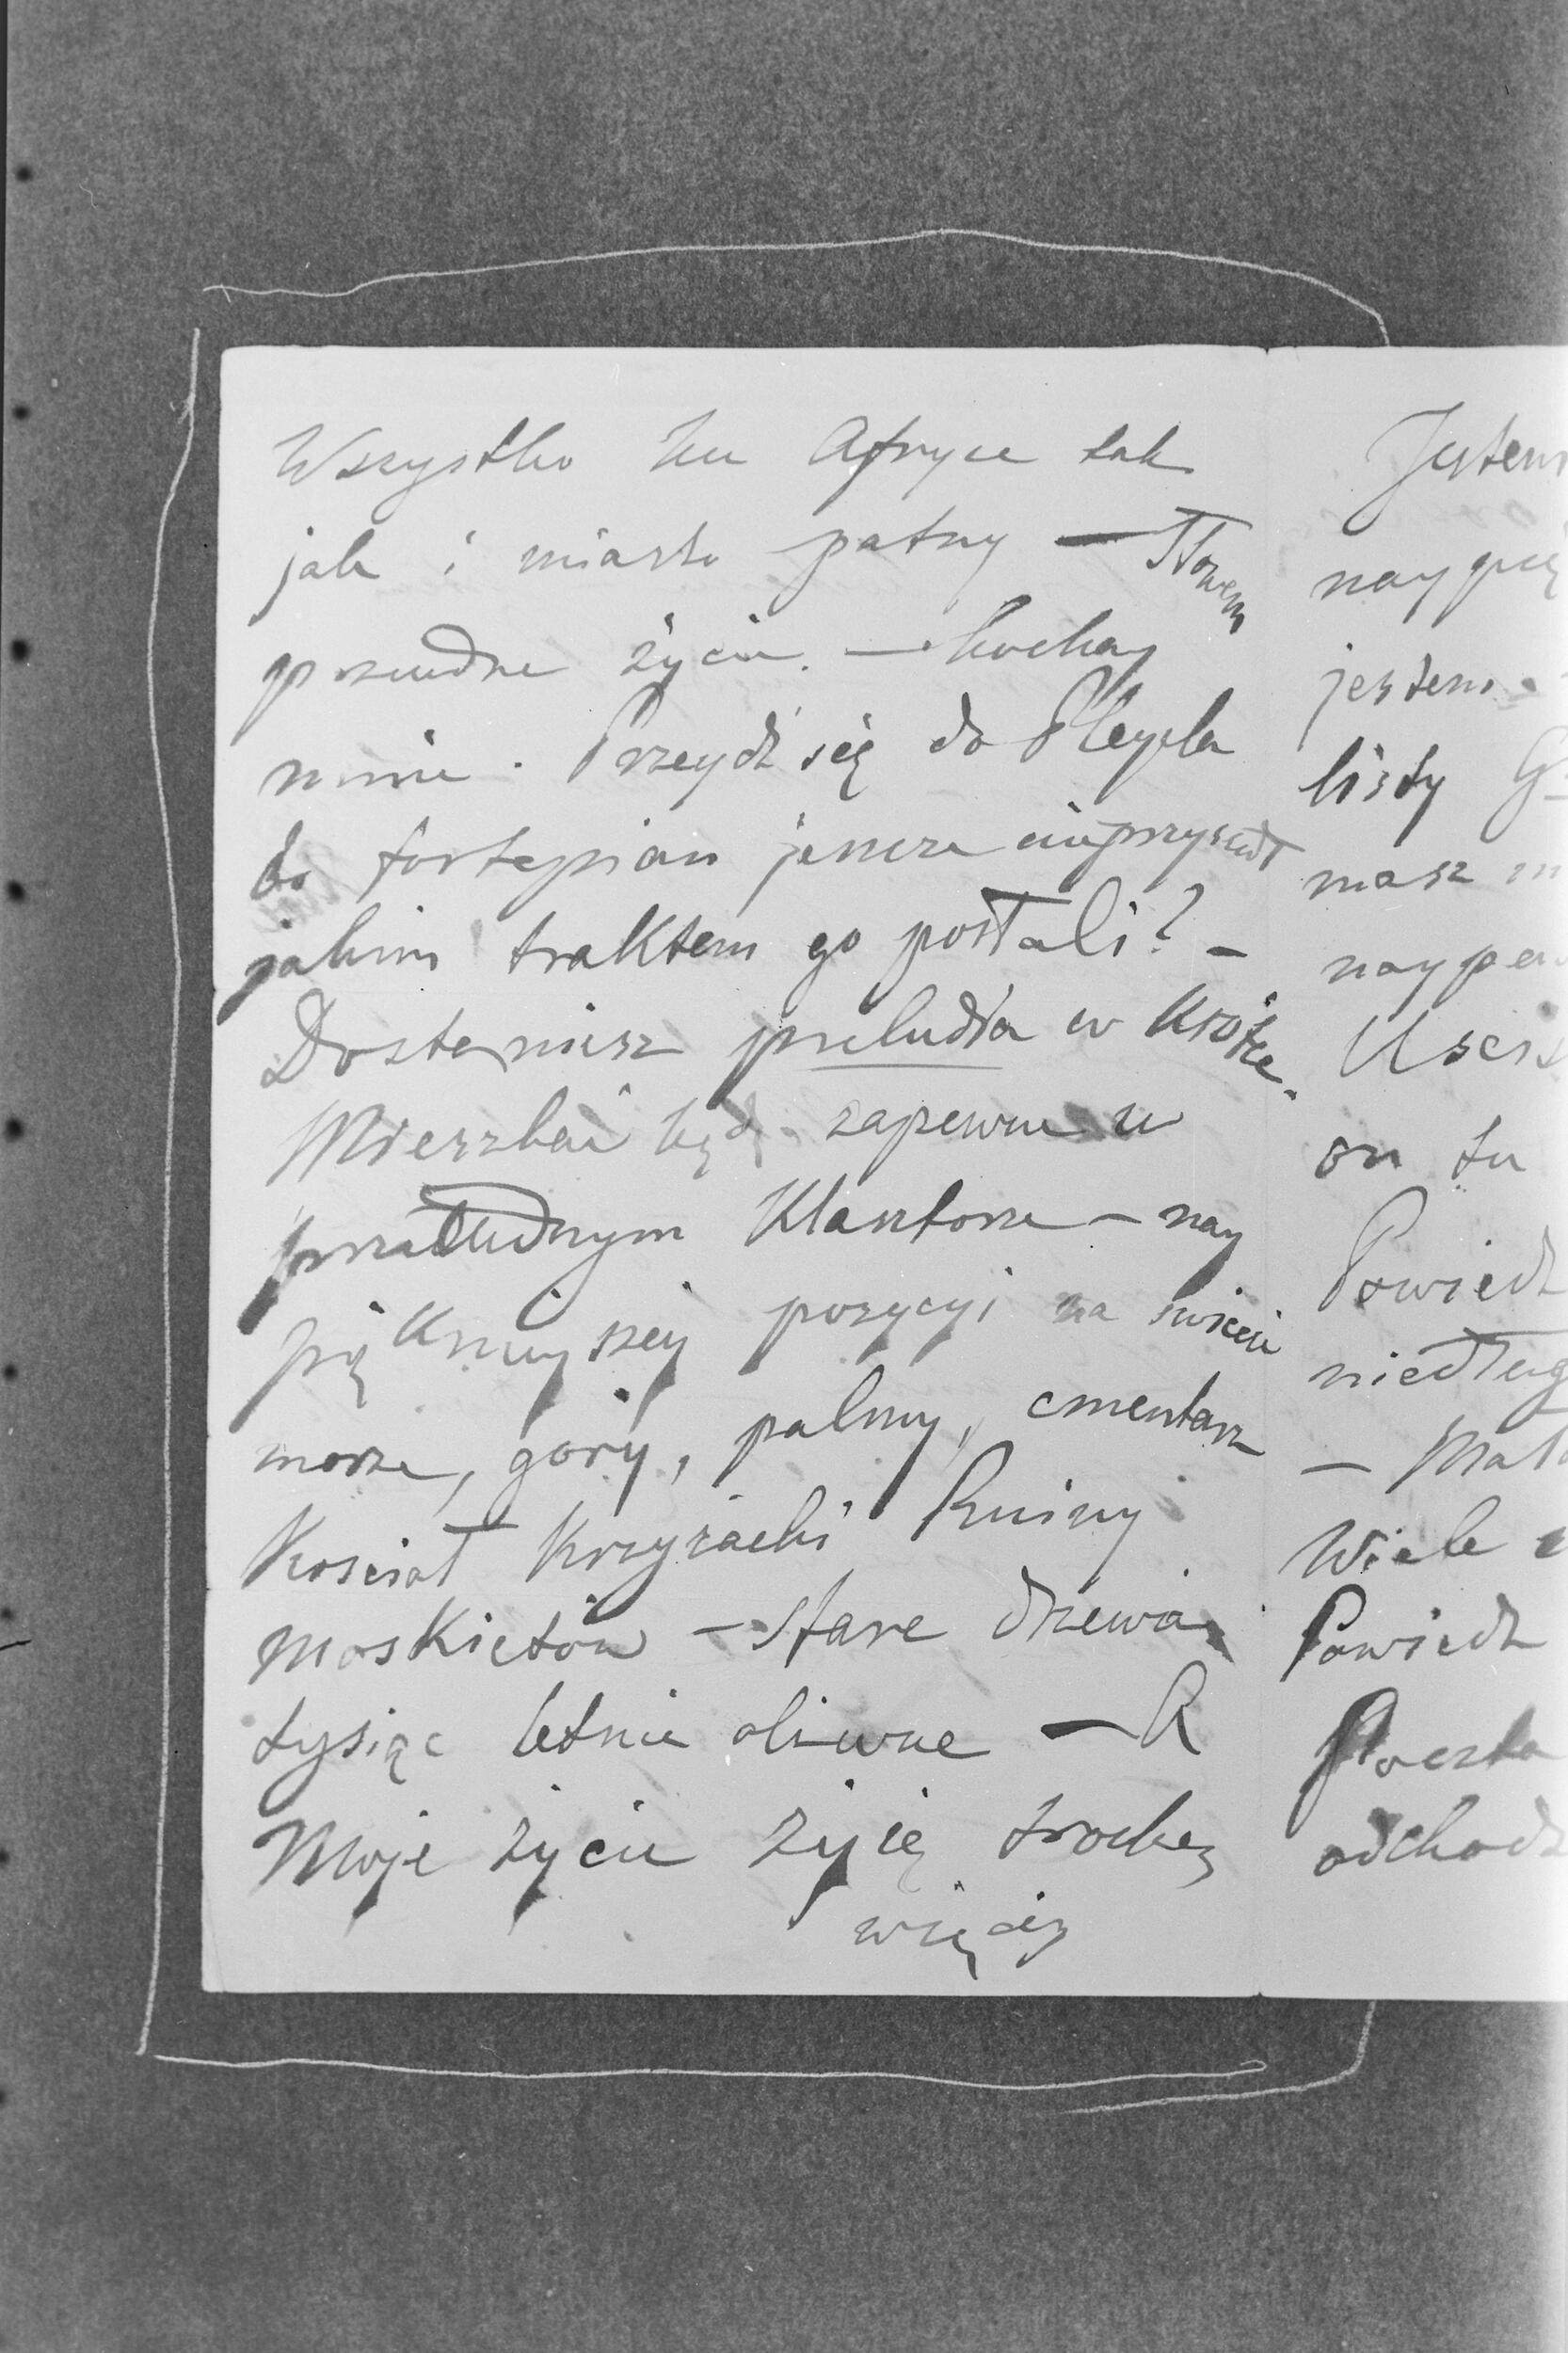 Wszystko ku Afryce tak
jak i miasto patrzy — Słowem
przecudne życie. — Kochay
mnie. Przeydź się do Pleyela
bo fortepian jeszcze nieprzyszedł
jakim traktem go posłali? —
Dostaniesz preludia w krótce.
Mieszkać będę zapewne w
przecudnym Klasztorze — nay
piękniejszej pozycyi na świecie
morze, góry, palmy, cmentarz
Kosciół krzyżacki Ruiny
moskietów — stare drzewa
tysiąc letnie oliwne — A
Moje życie żyię trochę
więcéy
Jestem
nayp
jestem
listy G
masz
naype
Usci
on tu
Powiedz
niedług
— Mat
Wiele
Powiedz
Poczta
odchodz